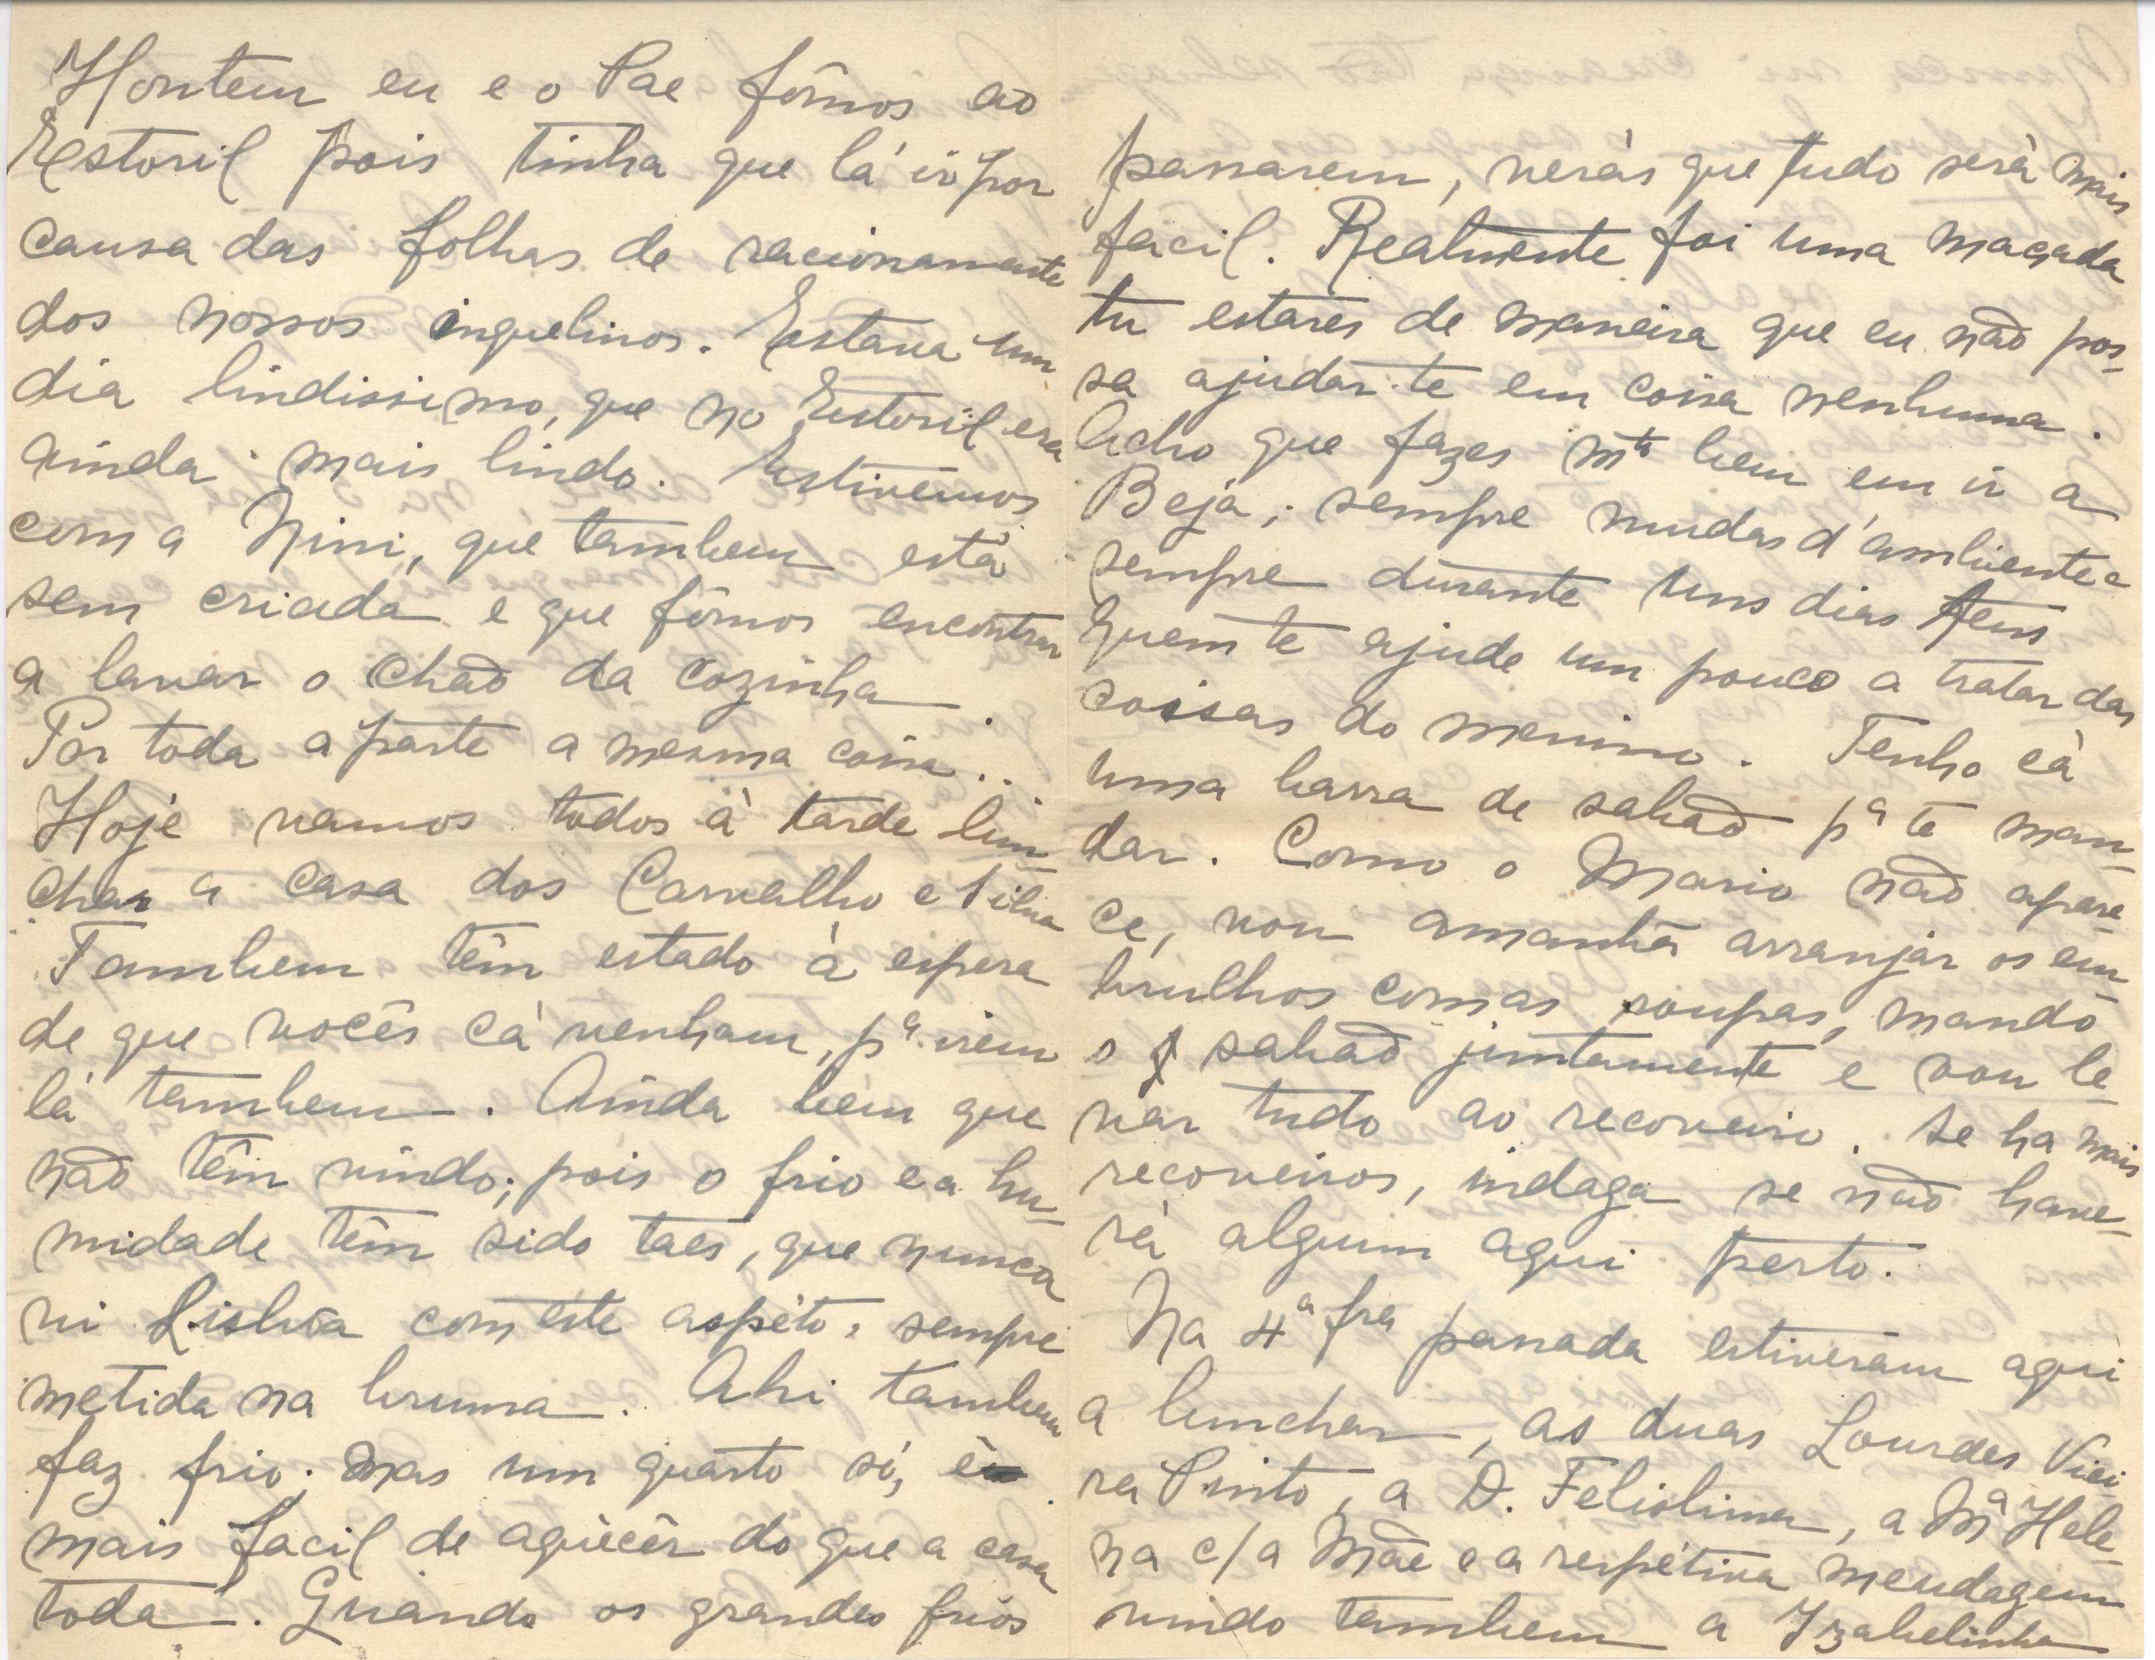 Hontem eu e o Pae fômos ao
Estoril pois tinha que lá ir por
causa das folhas de racionamento
dos nossos inquelinos. Estava um
dia lindissimo, que no Estoril era
ainda mais lindo. Estivémos
com a Nini, que tambem está
sem criada e que fômos encontrar
a lavar o chão da cozinha.
Por toda a parte a mesma coisa..
Hoje vamos todos à tarde lun-
char a casa dos Carvalho e Silva
Tambem têm estado à espera
de que vocês cá venham, pª irem
lá tambem. Ainda bem que
não têm vindo; pois o frio e a hu-
midade têm sido taes, que nunca
vi Lisbôa com este aspéto, sempre
metida na bruma. Ahi tambem
faz frio; mas um quarto só, é
mais facil de aquecêr do que a casa
toda. Quando os grandes frios
passarem, verás que tudo será mais
facil. Realmente foi uma maçada
tu estáres de maneira que eu não pos-
sa ajudar-te em coisa nenhuma.
Acho que fazes mtº bem em ir a
Beja; sempre mudas d'ambiente e
sempre durante uns dias tens
quem te ajude um pouco a tratar das
coisas do menino. Tenho cá
uma barra de sabão pª te man-
dar. Como o Mario não apare-
ce, vou amanhã arranjar os em-
brulhos com as roupas, mando
o sabão juntamente e vou le-
var tudo ao recoveiro. Se ha mais
recoveiros, indaga se não have-
rá algum aqui perto.
Na 4ª fra passada estiveram aqui
a lunchar, as duas Lourdes Viei
ra Pinto, a D. Felisbina, a Mª Hele-
na c/a Mãe e a respétiva mendagem
vindo tambem a Izabelinha